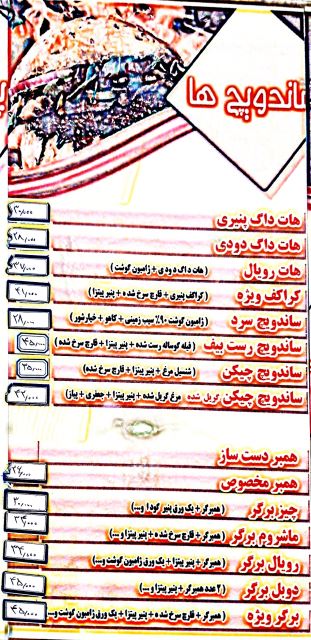 ساندویچ ها
هات داگ پنیری
هات داگ دودی ۲۸,۰۰۰
هات رویال (هات داگ دودی + ژامبون گوشت) ۳۷,۰۰۰
کراکف ویژه (کراکف پنیری + قارچ سرخ شده + پنیر پیتزا) ۴۱,۰۰۰
ساندویچ سرد (ژامبون گوشت ۹۰٪ سیب زمینی + کاهو + خیارشور) ۲۸,۰۰۰
ساندویچ رست بیف (فیله گوساله رست شده + پنیر پیتزا + قارچ سرخ شده) ۴۵,۰۰۰
ساندویچ چیکن (شنسل مرغ + پنیر پیتزا + قارچ سرخ شده) ۳۵,۰۰۰
ساندویچ چیکن گریل شده مرغ گریل شده + پنیر پیتزا + جعفری + پیاز) ۴۲,۰۰۰
همبر دست ساز
همبر مخصوص
چیزبرگر (همبرگر + یک ورق پنیر گودا و...) ۳۰,۰۰۰
ماشروم برگر (همبرگر + قارچ سرخ شده + پنیر پیتزا و...)
رویال برگر (همبرگر + پنیر پیتزا + یک ورق ژامبون گوشت و...) ۳۴,۰۰۰
دوبل برگر (۲ عدد همبرگر + پنیر پیتزا و...) ۴۵,۰۰۰
برگر ویژه (همبرگر + قارچ سرخ شده + پنیر پیتزا + یک ورق ژامبون گوشت و...) ۴۵,۰۰۰